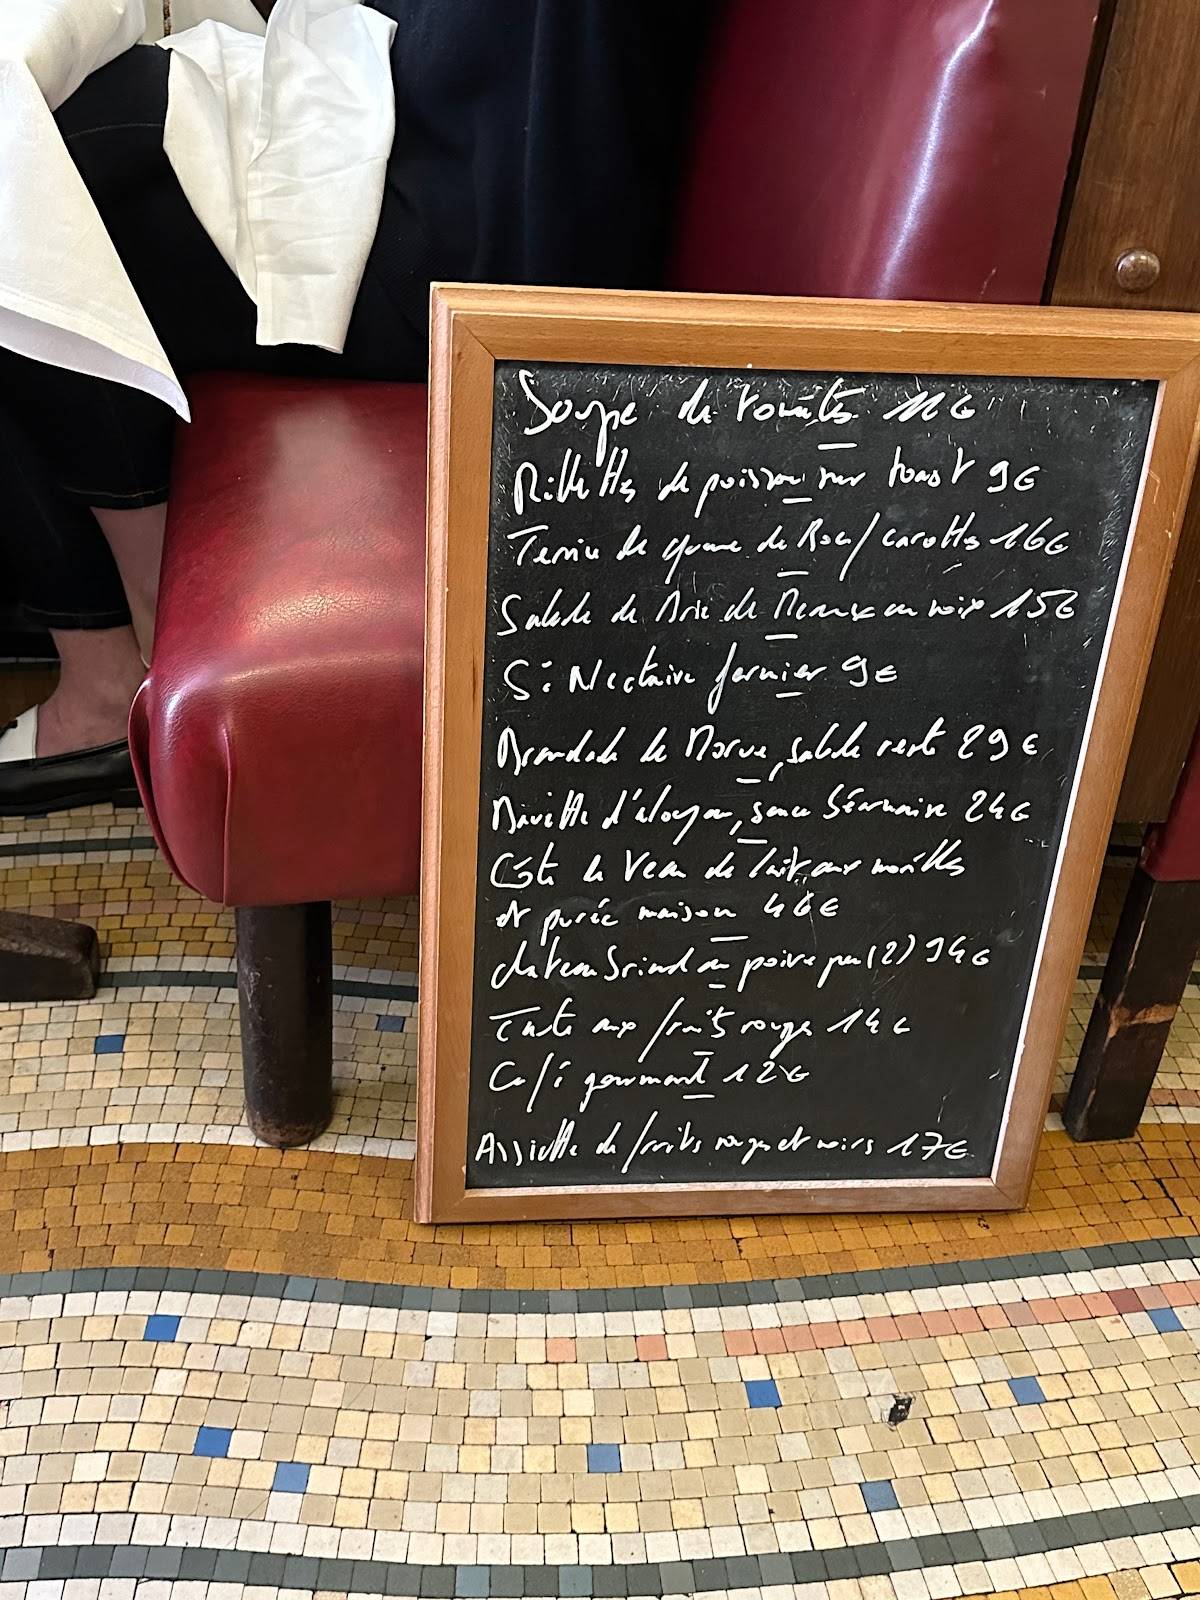 Soupe de tomates 11€
Rillettes de poisson sur toast 9€
Terrine de queue de Bœuf/carottes 16€
Salade de Brie de Meaux aux noix 15€
St Nectaire fermier 9€
Brandade de Morue, salade verte 29€
Bavette d'aloyau, sauce béarnaise 24€
Côte de Veau de lait aux morilles
et purée maison 46€
chateaubriand au poivre pr (2) 94€
Tarte aux fruits rouges 14€
Café gourmand 12€
Assiette de fruits rouges et noirs 17€